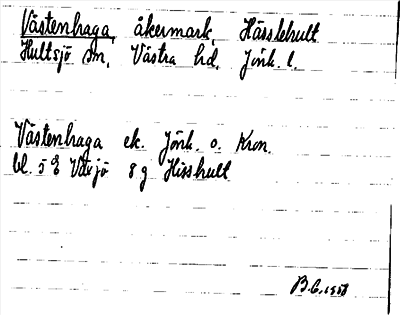 Västenhaga, åkermark, Hässlehult
Hultsjö sn, Västra hd. Jönk. l.
Västenhaga ek. Jönk. o. Kron.
bl. 5 E Växjö 8 g Hisshult